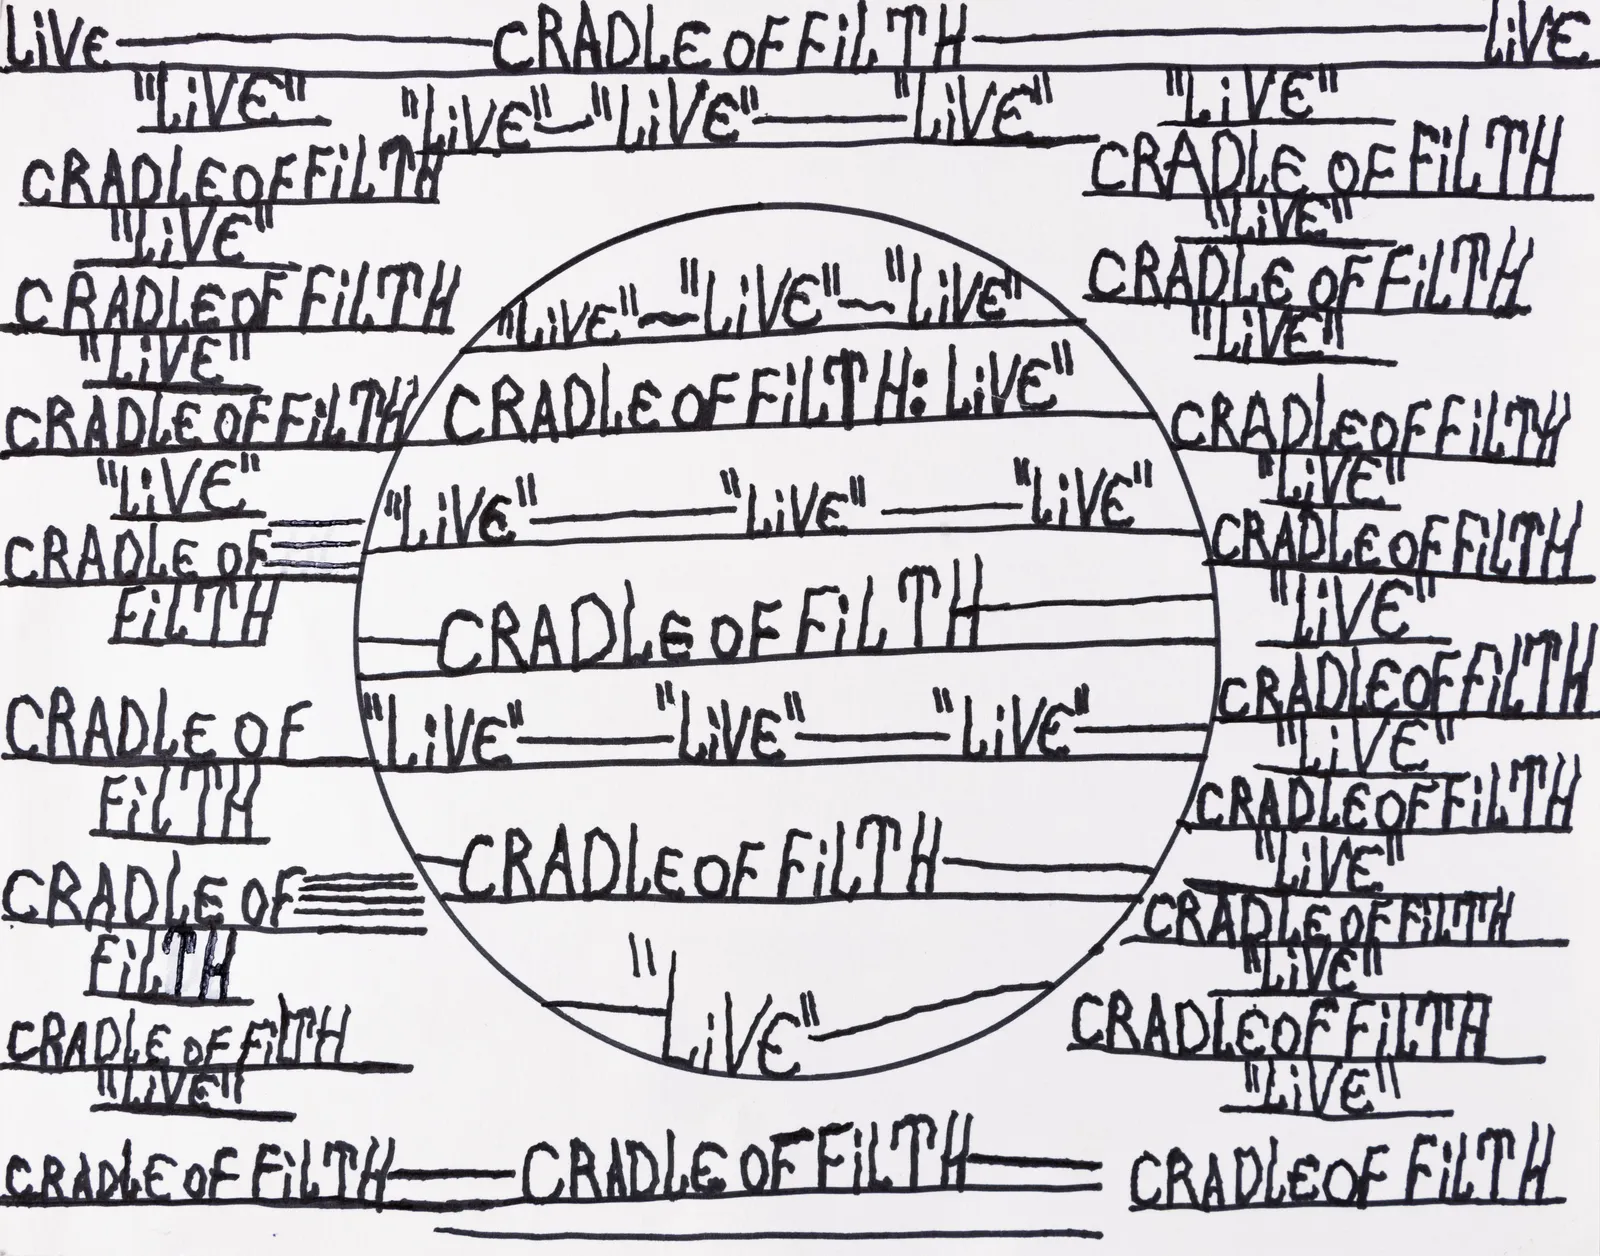 LiVE CRADLE OF FiLTH LiVE
"LiVE"
"LiVE" "LiVE" "LiVE"
"LiVE"
CRADLE OF FiLTH
"LiVE"
CRADLE OF FiLTH
"LiVE"
CRADLE OF FiLTH
"LiVE"
CRADLE OF
FiLTH
CRADLE OF
FiLTH
CRADLE OF
FiLTH
CRADLE OF FiLTH
"LiVE"
"LiVE" "LiVE" "LiVE"
CRADLE OF FiLTH: LiVE"
"LiVE" "LiVE" "LiVE"
CRADLE OF FiLTH
"LiVE" "LiVE" "LiVE"
CRADLE OF FiLTH
"LiVE"
CRADLE OF FiLTH
"LiVE"
CRADLE OF FiLTH
"LiVE"
CRADLE OF FiLTH
"LiVE"
CRADLE OF FiLTH
"LiVE"
CRADLE OF FiLTH
"LiVE"
CRADLE OF FiLTH
"LiVE"
CRADLE OF FiLTH
"LiVE"
CRADLE OF FiLTH
"LiVE"
CRADLE OF FiLTH CRADLE OF FiLTH CRADLE OF FiLTH